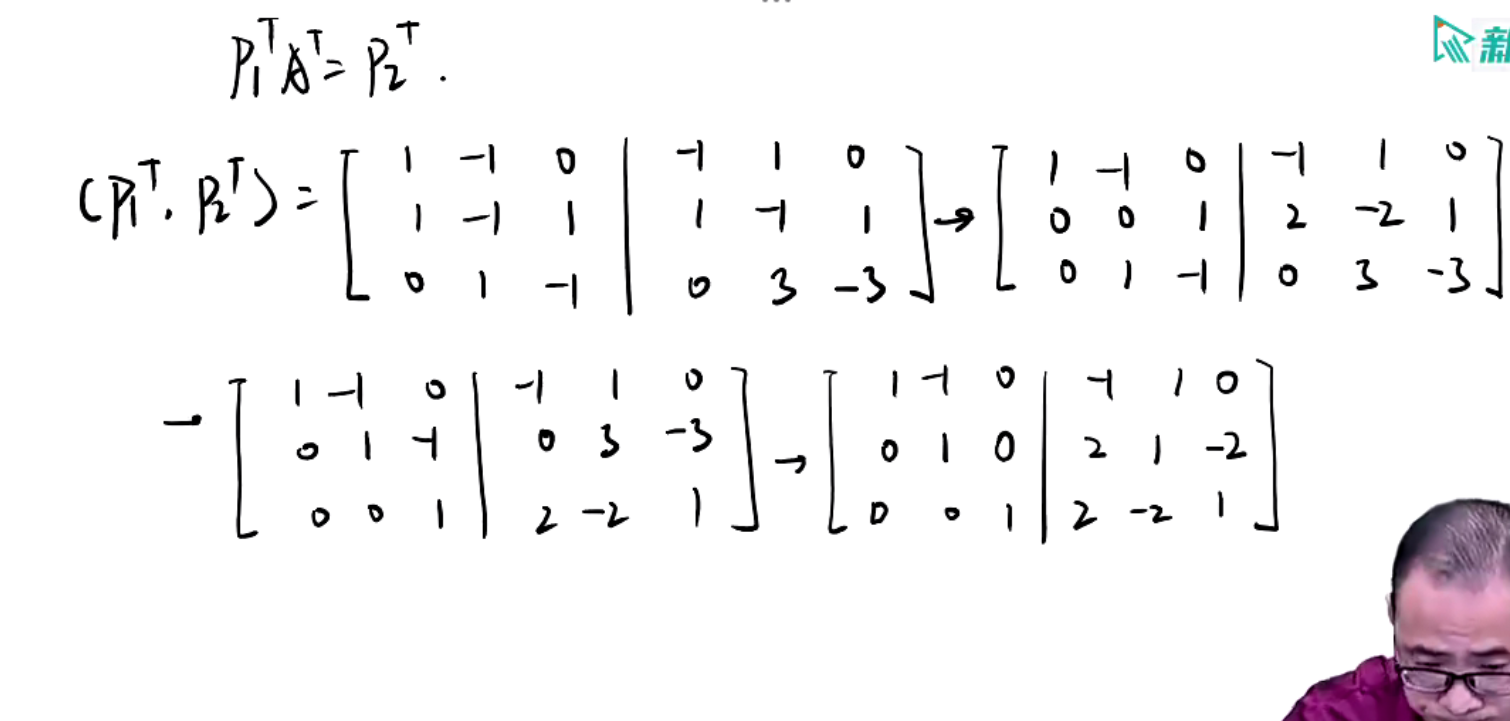 P₁ᵀAᵀ = P₂ᵀ.
(P₁ᵀ, P₂ᵀ) = [1 -1 0 | -1 1 0; 1 -1 1 | 1 -1 1; 0 1 -1 | 0 3 -3] → [1 -1 0 | -1 1 0; 0 0 1 | 2 -2 1; 0 1 -1 | 0 3 -3]
→ [1 -1 0 | -1 1 0; 0 1 -1 | 0 3 -3; 0 0 1 | 2 -2 1] → [1 -1 0 | -1 1 0; 0 1 0 | 2 1 -2; 0 0 1 | 2 -2 1]
新